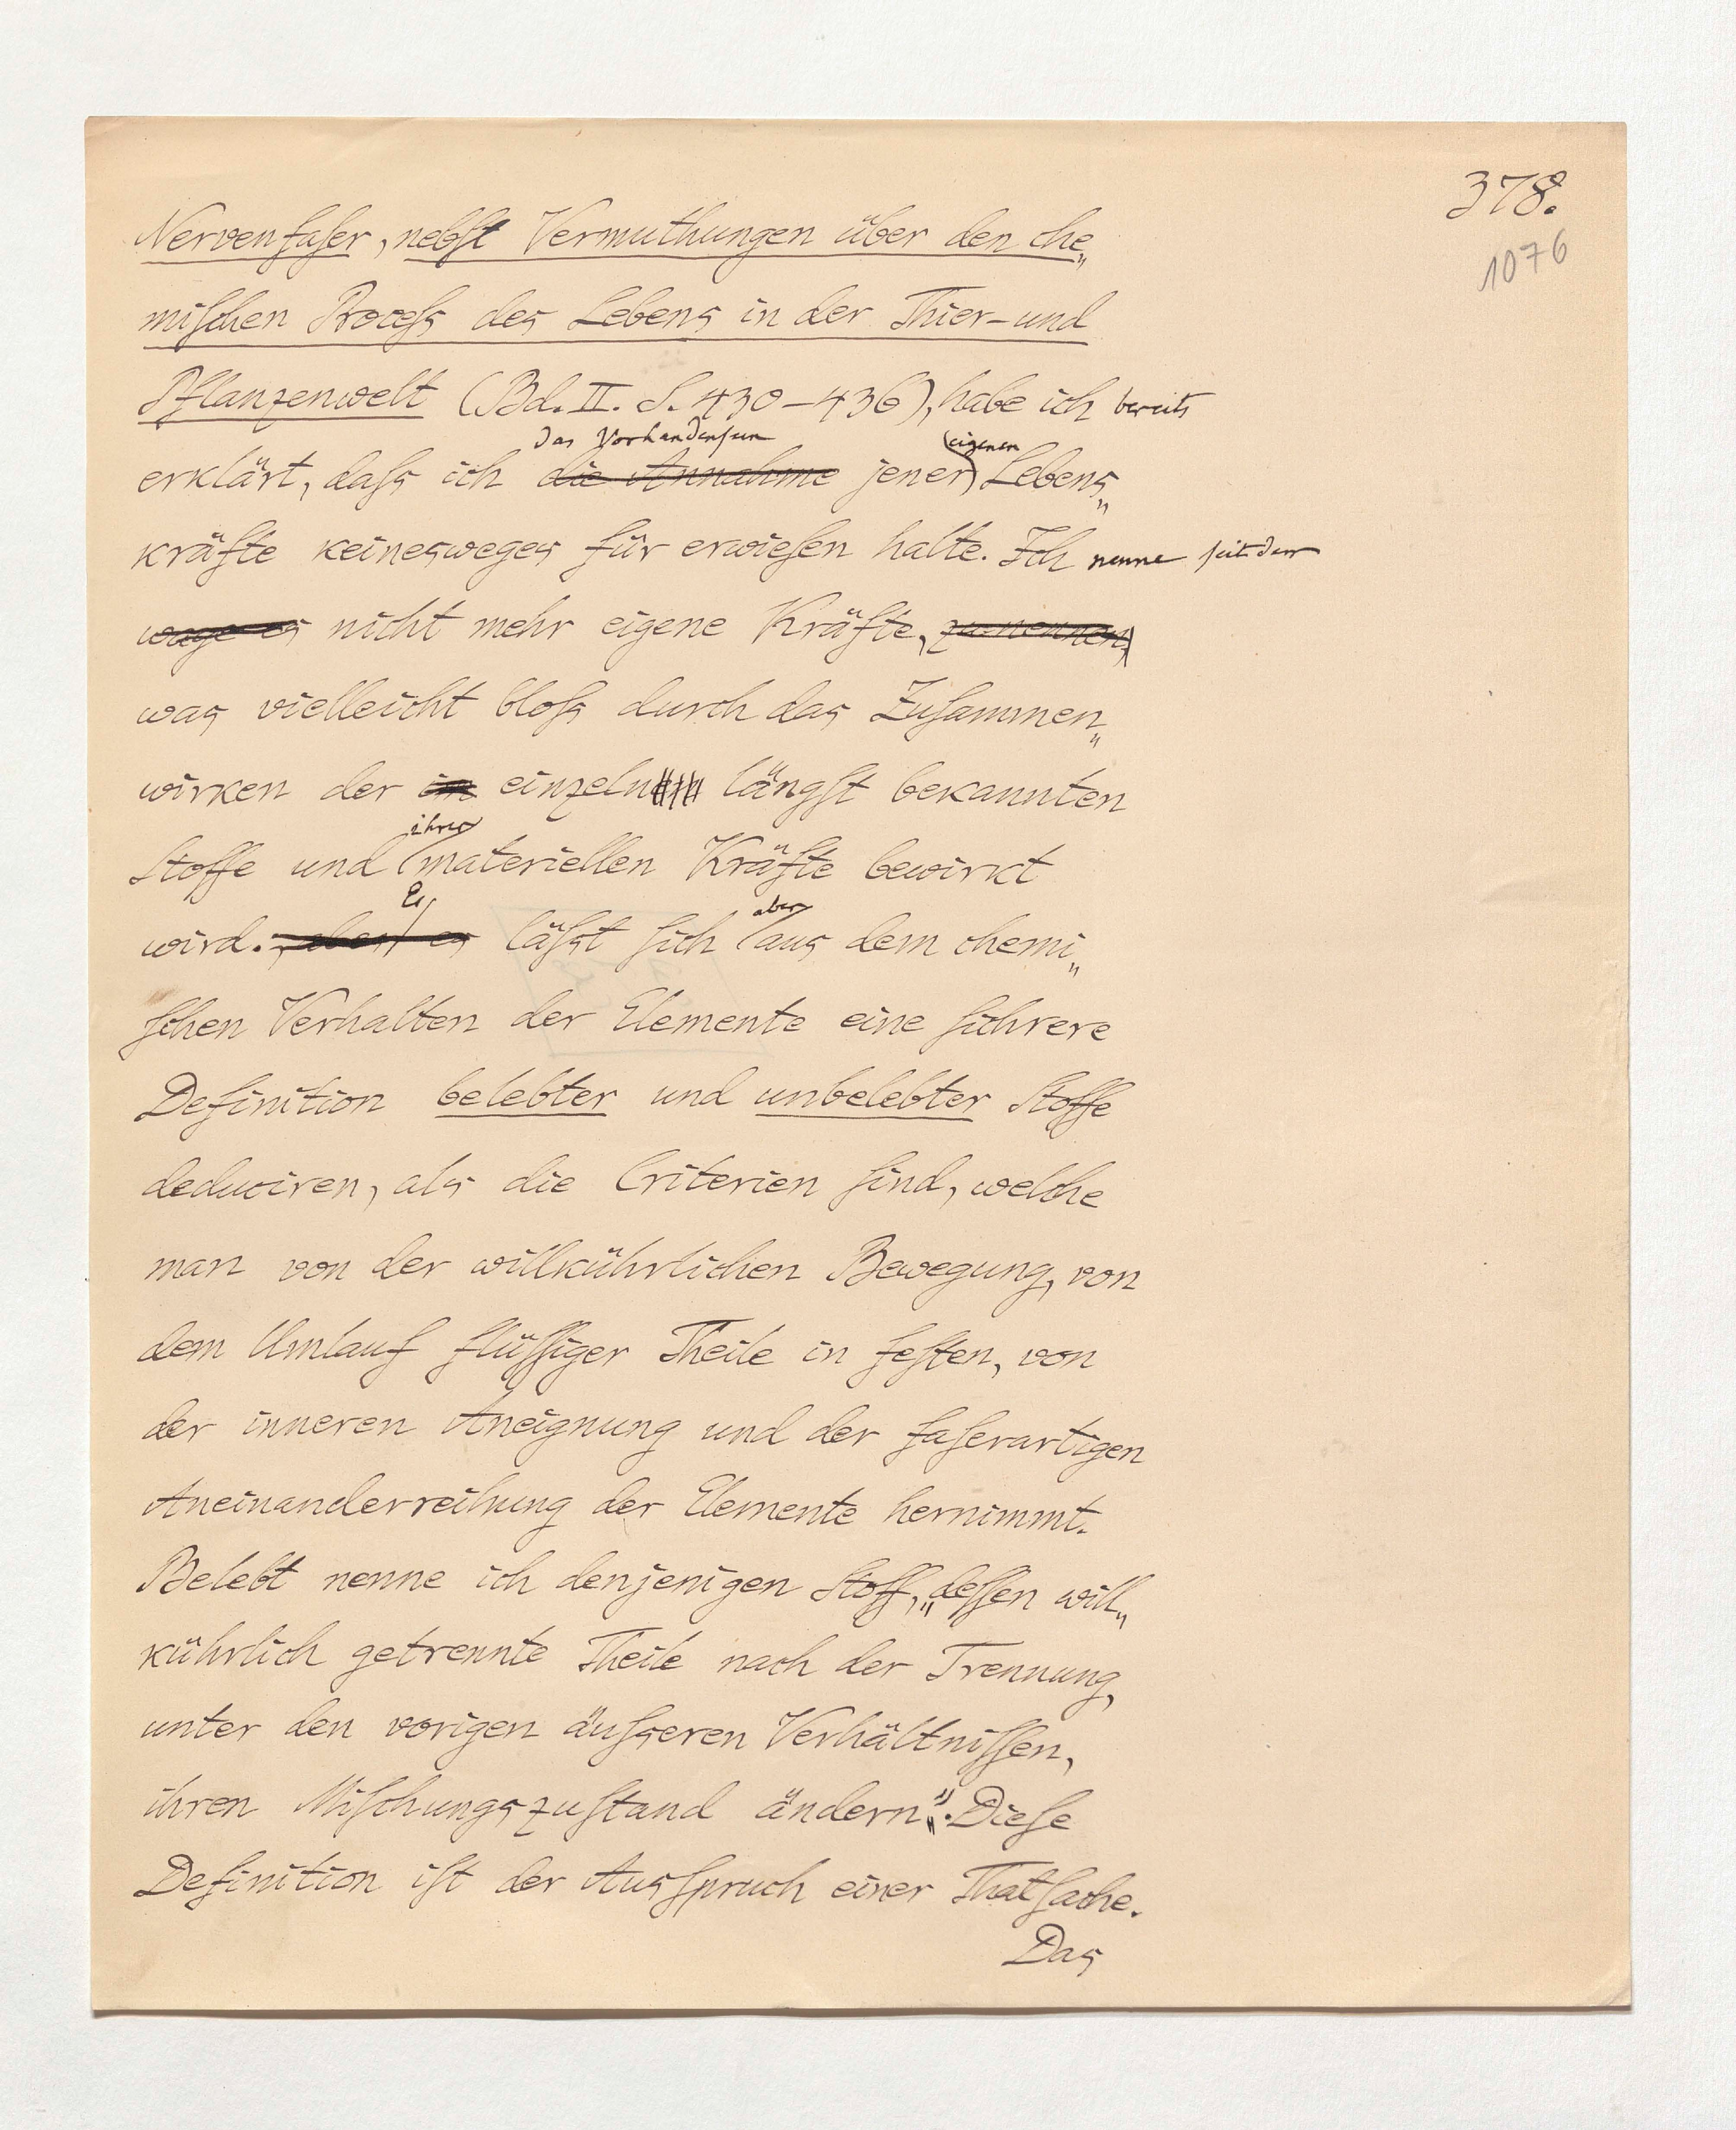 378.
1076
Nervenfaser, nebst Vermuthungen über den che„
mischen Process des Lebens in der Thier-und
Pflanzenwelt (Bd. II. S. 430–436), habe ich bereits
das Vorhandensein eigenen
erklärt, dass ich die Annahme jener Lebens„
kräfte keinesweges für erwiesen halte. Ich nenne seitdem
wage es nicht mehr eigene Kräfte, zu nennen,
was vielleicht bloss durch das Zusammen„
wirken der im einzeln längst bekannten
ihrer
Stoffe und materiellen Kräfte bewirkt
Es aber
wird. , aber es lässt sich aus dem chemi„
schen Verhalten der Elemente eine sichrere
Definition belebter und unbelebter Stoffe
deduciren, als die Criterien sind, welche
man von der willkührlichen Bewegung, von
dem Umlauf flüssiger Theile in festen, von
der inneren Aneignung und der faserartigen
Aneinanderreihung der Elemente hernimmt.
Belebt nenne ich denjenigen Stoff, „dessen will„
kührlich getrennte Theile nach der Trennung,
unter den vorigen äusseren Verhältnissen,
ihren Mischungszustand ändern“. Diese
Definition ist der Ausspruch einer Thatsache.
Das